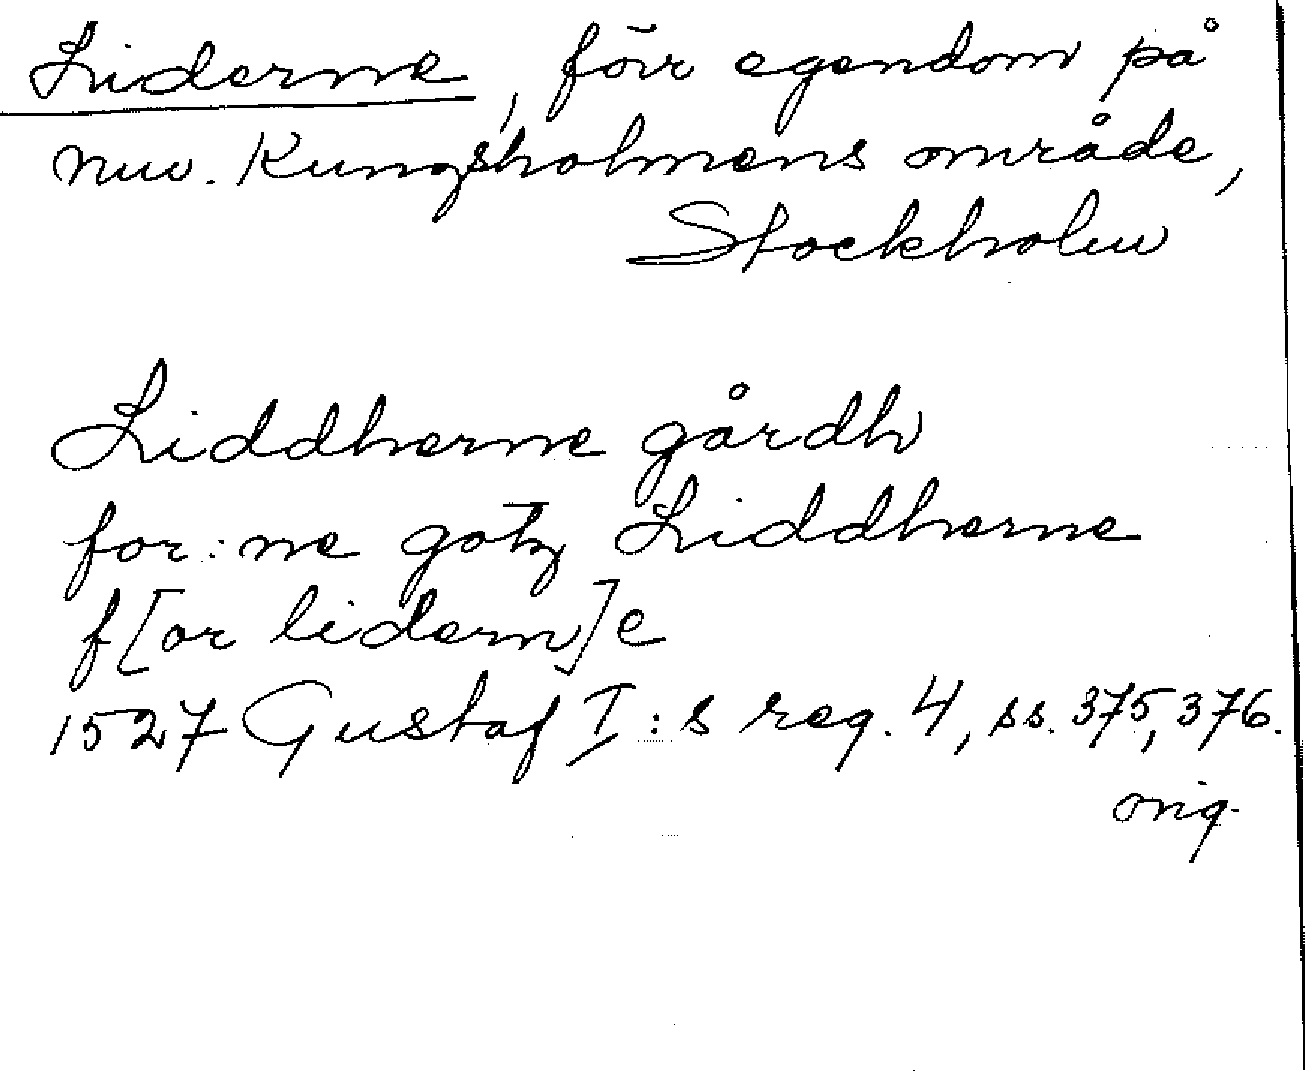 Liderne, förr egendom på
nuv. Kungsholmens område,
Stockholm
Liddherne gårdh
for:ne gotz Liddherne
f[or lidern]e
1527 Gustaf I:s reg. 4, ss. 375, 376.
orig.